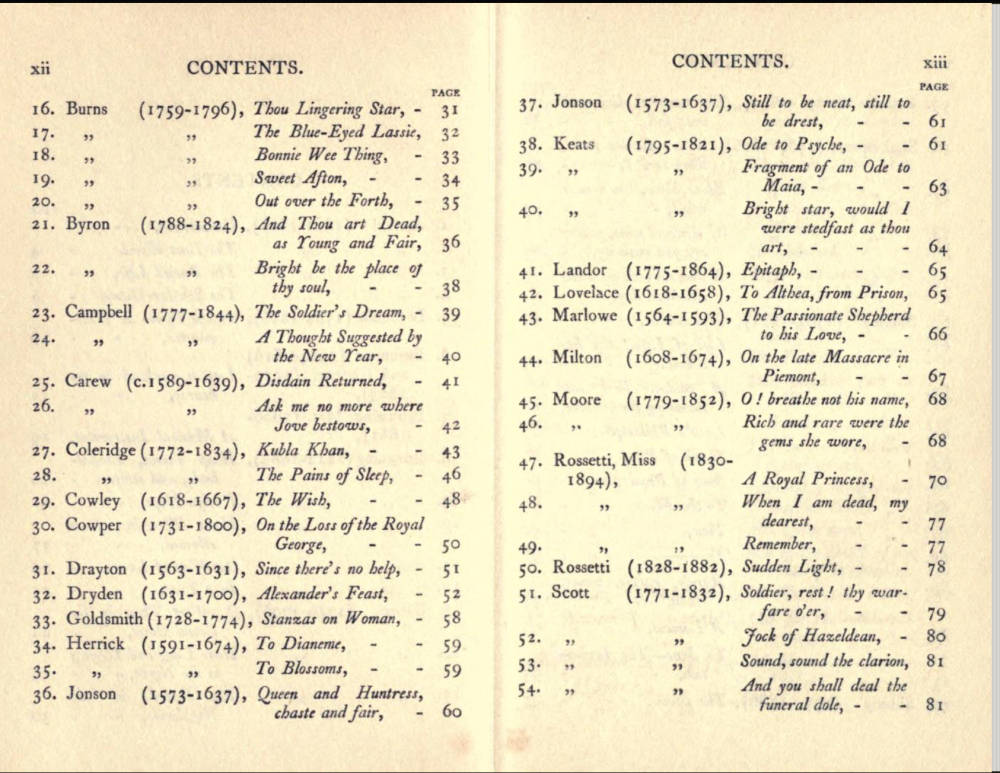 xii
CONTENTS.
PAGE
16. Burns (1759-1796), Thou Lingering Star, - 31
17. „ „ The Blue-Eyed Lassie, 32
18. „ „ Bonnie Wee Thing, - 33
19. „ „ Sweet Afton, - - 34
20. „ „ Out over the Forth, - 35
21. Byron (1788-1824), And Thou art Dead,
as Young and Fair, 36
22. „ „ Bright be the place of
thy soul, - - 38
23. Campbell (1777-1844), The Soldier's Dream, - 39
24. „ „ A Thought Suggested by
the New Year, 40
25. Carew (c.1589-1639), Disdain Returned, - 41
26. „ „ Ask me no more where
Jove bestows, - 42
27. Coleridge (1772-1834), Kubla Khan, - - 43
28. „ „ The Pains of Sleep, - 46
29. Cowley (1618-1667), The Wish, - - 48
30. Cowper (1731-1800), On the Loss of the Royal
George, - - 50
31. Drayton (1563-1631), Since there's no help, - 51
32. Dryden (1631-1700), Alexander's Feast, - 52
33. Goldsmith (1728-1774), Stanzas on Woman, - 58
34. Herrick (1591-1674), To Dianeme, - - 59
35. „ „ To Blossoms, - - 59
36. Jonson (1573-1637), Queen and Huntress,
chaste and fair, - 60
CONTENTS.
xiii
PAGE
37. Jonson (1573-1637), Still to be neat, still to
be drest, - - 61
38. Keats (1795-1821), Ode to Psyche, - - 61
39. „ „ Fragment of an Ode to
Maia, - - - 63
40. „ „ Bright star, would I
were stedfast as thou
art, - - - 64
41. Landor (1775-1864), Epitaph, - - - 65
42. Lovelace (1618-1658), To Althea, from Prison, 65
43. Marlowe (1564-1593), The Passionate Shepherd
to his Love, - - 66
44. Milton (1608-1674), On the late Massacre in
Piemont, - - 67
45. Moore (1779-1852), O! breathe not his name, 68
46. „ „ Rich and rare were the
gems she wore, - 68
47. Rossetti, Miss (1830-
1894), A Royal Princess, - 70
48. „ „ When I am dead, my
dearest, - - 77
49. „ „ Remember, - - 77
50. Rossetti (1828-1882), Sudden Light, - - 78
51. Scott (1771-1832), Soldier, rest! thy war-
fare o'er, - - 79
52. „ „ Jock of Hazeldean, - 80
53. „ „ Sound, sound the clarion, 81
54. „ „ And you shall deal the
funeral dole, - - 81